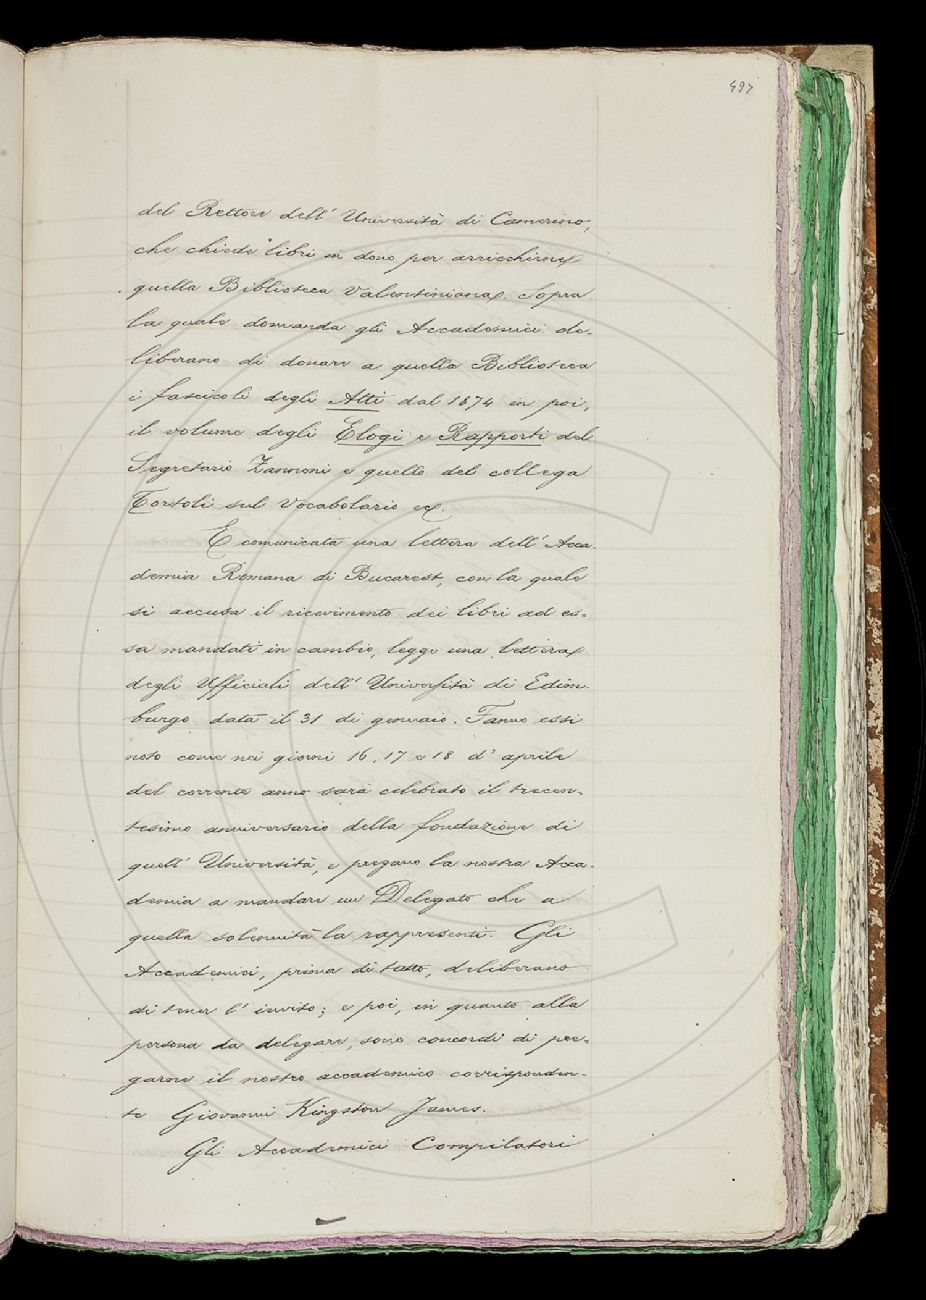 497
del Rettore dell' Università di Camerino,
che chiede libri in dono per arricchirne
quella Biblioteca Valentiniana. Sopra
la quale domanda gli Accademici de-
liberano di donare a quella Biblioteca
i fascicoli degli Atti dal 1874 in poi,
il volume degli Elogi e Rapporti del
Segretario Zannoni e quello del collega
Tortoli sul Vocabolario ec.
E comunicata una lettera dell' Acca-
demia Romana di Bucarest, con la quale
si accusa il ricevimento dei libri ad es-
sa mandati in cambio, legge una lettera
degli Ufficiali dell' Università di Edim-
burgo data il 31 di gennaio. Fanno essi
noto come nei giorni 16, 17 e 18 d' aprile
del corrente anno sarà celebrato il trecen-
tesimo anniversario della fondazione di
quell' Università, e pregano la nostra Acca-
demia a mandare un Delegato che a
quella solennità la rappresenti. Gli
Accademici, prima di tutto, deliberano
di tener l' invito; e poi, in quanto alla
persona da delegare, sono concordi di pre-
garne il nostro accademico corrisponden-
te Giovanni Kingston James.
Gli Accademici Compilatori